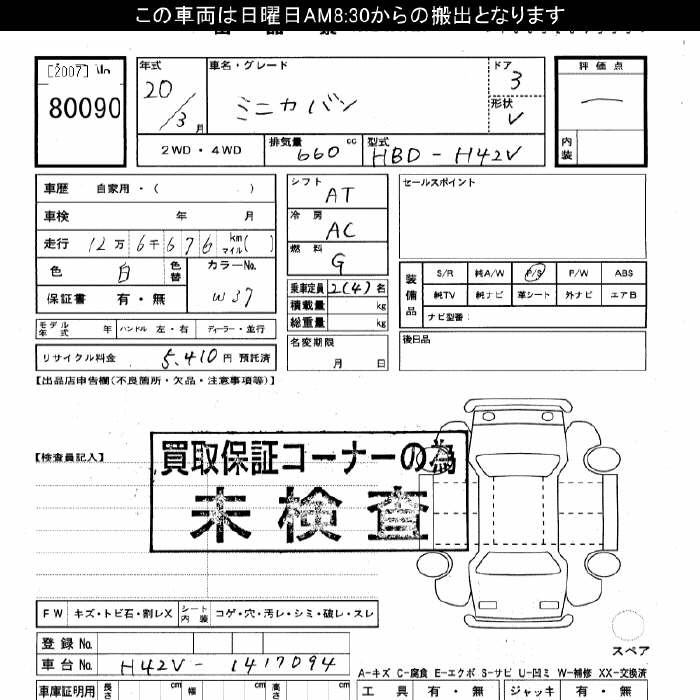 この車両は日曜日AM8:30からの搬出となります
[2007]
80090
年式 車名・グレード ドア 評価点
20/3月 ミニカバン 3 一
形状 V
2WD・4WD 排気量 660 cc 型式 HBD-H42V 内装
車歴 自家用・( )
シフト AT
セールスポイント
車検 年 月
冷房 AC
走行 12万6千676 km マイル ( )
燃料 G
色 白 色替 カラーNo. W37
乗車定員 2(4)名
積載量 kg
総重量 kg
装備品 S/R 純A/W P/S P/W ABS
純TV 純ナビ 革シート 外ナビ エアB
ナビ型番:
保証書 有・無
モデル年式 年 ハンドル 左・右 ディーラー・並行
名変期限 月 日
後日品
リサイクル料金 5,410円 預託済
【出品店申告欄(不良箇所・欠品・注意事項等)】
【検査員記入】
買取保証コーナーの為
未検査
FW キズ・トビ石・割レX シート内装 コゲ・穴・汚レ・シミ・破レ・スレ
スペア
登録No.
車台No. H42V-1417094
A-キズ C-腐食 E-エクボ S-サビ U-凹ミ W-補修 XX-交換済
車庫証明用 長さ cm 幅 cm 高さ cm
工具 有・無 ジャッキ 有・無